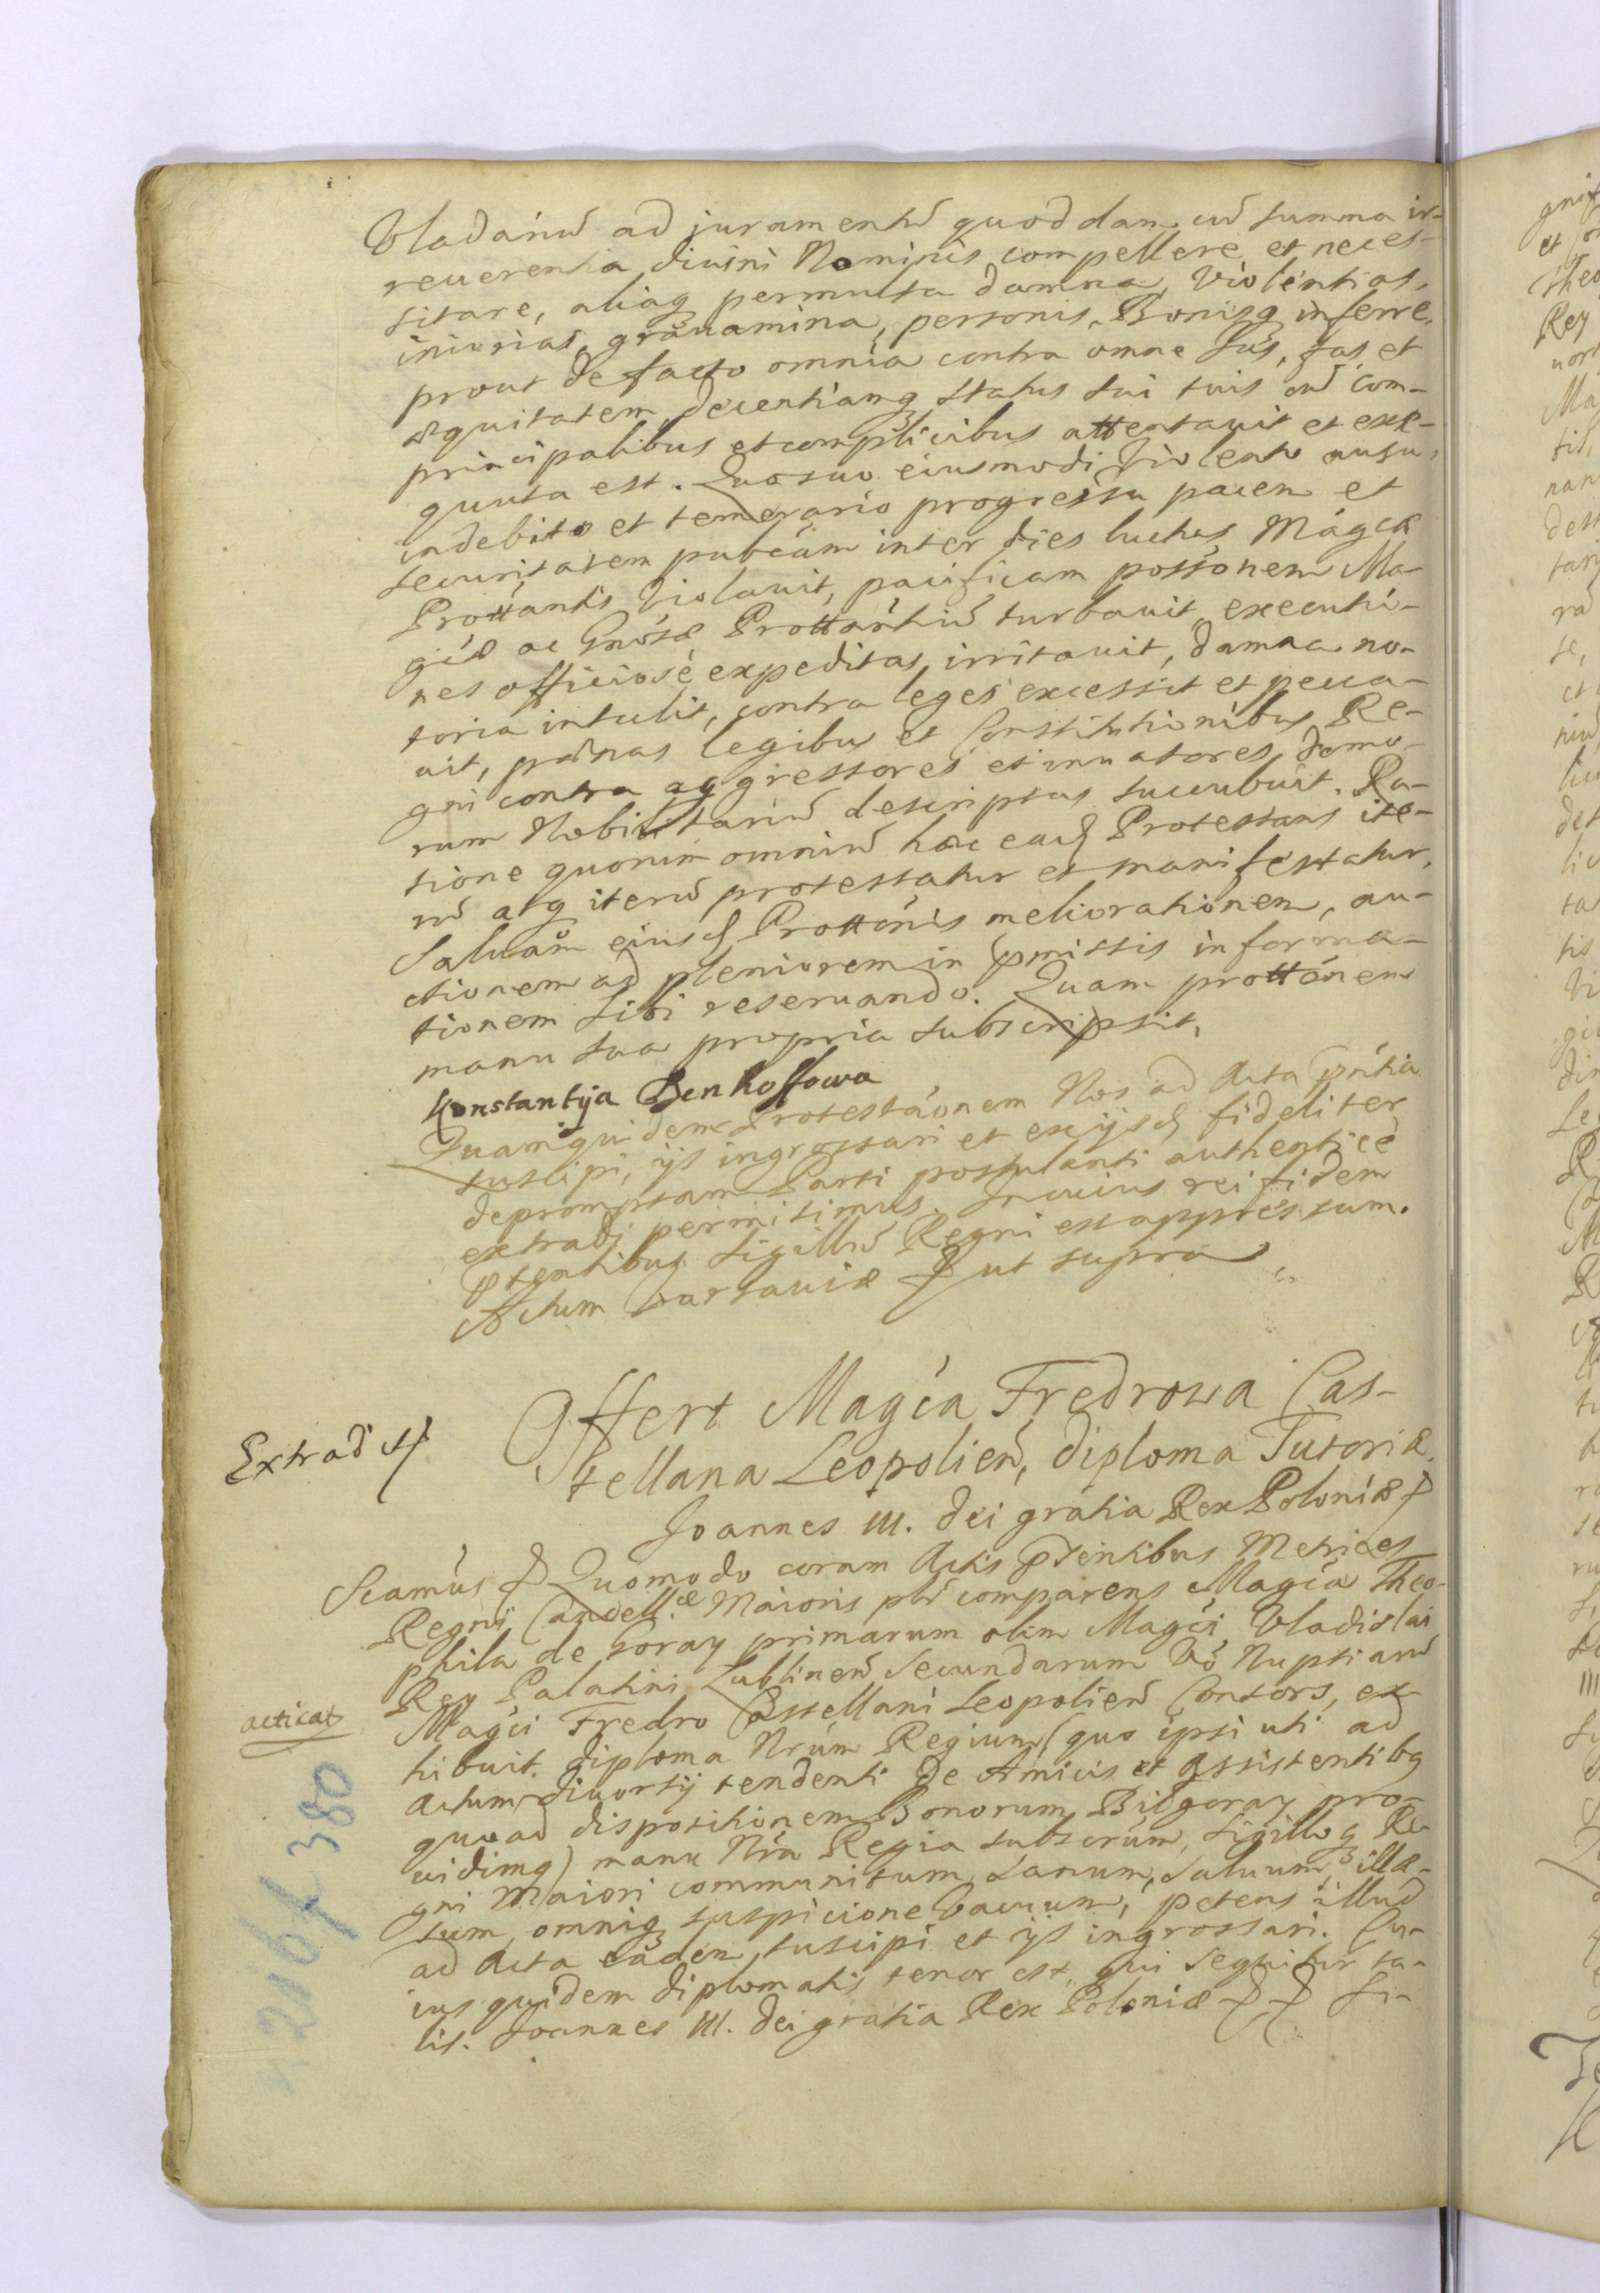 Vladariú ad juramentú quoddam cú summa ir-
reuerentia diuini Nominis compellere et neces-
sitare, aliaq permulta damna, violentias,
iniurias, grauamina, personis, Bonisq inferre,
prout de facto omnia contra omne Jus, fas et
æquitatem, decentiamq status sui suis cú com-
principalibus et complicibus attentauit et exe-
quuta est. Quo suo eiusmodi violento ausu,
indebito et temerario progressu pacem et
securitatem pubcam inter dies luctus Magcæ
Prottantis violauit, pacificam possonem Ma-
gcæ ac Gnosæ Prottantiú turbauit, executi-
nes officiosè expeditas, irritauit, damna no-
toria intulit, contra leges excessit et pecca-
uit, pœnas legibus et Constitutionibus Re-
gni contra aggressores et inuasores domo-
rum Nobilitariú descriptas succubuit. Ra-
tione quorum omniú hæc eadẽ Protestans ite-
rú atq iterú protestatur et manifestatur,
Saluam eiusd Prottonis meliorationem, au-
ctionem ad pleniorem in pmissis informa-
tionem sibi reseruando. Quam prottonem
manu sua propria subscripsit,
Konstantÿa Denhoffowa
Quam quidem Protestaonem Nos ad Acta pntia
suscipi, ijs ingrossari et ex ijsd fideliter
depromptam Parti postulanti authenticè
extradi permisimus. In cuius rei fidem
pñtentibus sigillú Regni est appressum.
Actum Varsauiæ ut supra
Offert Magca Fredrowa Cas-
tellana Leopolień, diploma Tutoriæ.
Extradit
Joannes III. Dei gratia Rex Poloniæ
Scamus Quomodo coram Actis pntentibus Metrices
Regni Cancell.æ Maioris plr comparens Magca Theo-
phila de Goray primarum olim Magci Vladislai
Rey Palatini Lublineń Secundarum vó Nuptiarú
Magci Fredro Castellani Leopolień Consors, ex-
acticat
hibuit diploma Nrúm Regium (quo ipsi uti ad
actum diuortij tendenti de Amicis et assistentibq
quoad dispositionem Bonorum Bilgoray pro-
uidimq) manu Nra Regia subscrúm, sigilloq Re-
gni Maiori communitum, sanum, saluum, illæ-
sum, omniq suspicione vacuum, petens illud
ad Acta eadem suscipi et ijs ingrossari. Cu-
ius quidem diplomatis tenor est, qui sequitur ta-
lis. Joannes III. Dei gratia Rex Poloniæ Si-
216 f 380